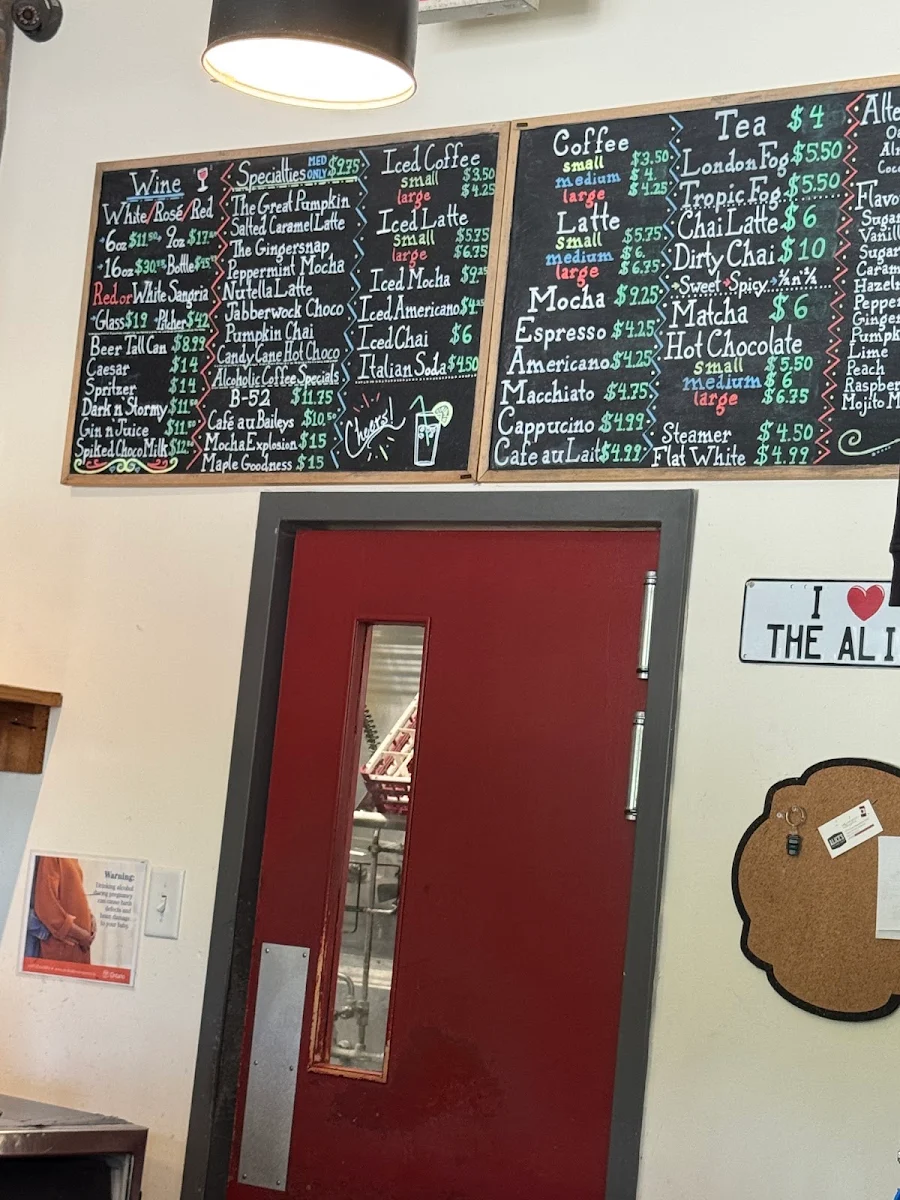 Wine
White/Rosé/Red
6oz $11.50, 9oz $17.
16oz $30. Bottle
Red or White Sangria
Glass $19 Pitcher $42
Beer Tall Can $8.99
Caesar $14
Spritzer $14
Dark n' Stormy $11.
Gin n' Juice $11.
Spiked Choco Milk $12.
Specialties MED ONLY $9.75
The Great Pumpkin
Salted Caramel Latte
The Gingersnap
Peppermint Mocha
Nutella Latte
Jabberwock Choco
Pumpkin Chai
Candy Cane Hot Choco
Alcoholic Coffee Specials
B-52 $11.75
Café au Baileys $10.
Mocha Explosion $15
Maple Goodness $15
Iced Coffee
small $3.50
large $4.25
Iced Latte
small $5.75
large $6.75
Iced Mocha
Iced Americano
Iced Chai $6
Italian Soda $4.50
Cheers!
Coffee
small $3.50
medium $4.
large $4.25
Latte
small $5.75
medium $6.
large $6.75
Mocha $9.25
Espresso $4.25
Americano $4.25
Macchiato $4.75
Cappucino $4.99
Cafe au Lait $4.99
Tea $4
London Fog $5.50
Tropic Fog $5.50
Chai Latte $6
Dirty Chai $10
Sweet Spicy
Matcha $6
Hot Chocolate
small $5.50
medium $6
large $6.75
Steamer $4.50
Flat White $4.99
Alte
Flavo
Sugar
Vanill
Sugar
Caram
Hazeln
Pepper
Ginger
Pumpk
Lime
Peach
Raspber
Mojito M
I ❤
THE ALI
Warning:
Drinking alcohol
during pregnancy
can cause birth
defects and
brain damage
to your baby.
Ontario